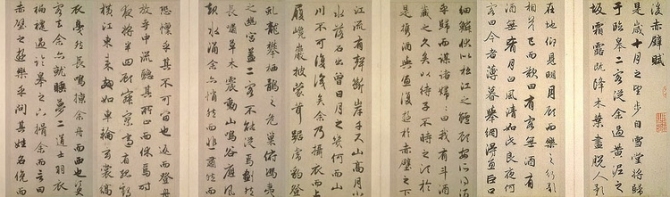 後赤壁賦
是歲十月之望步自雪堂將歸
于臨皋二客從余過黃泥之
坂霜露既降木葉盡脫人影
在地仰見明月顧而樂之行歌
相答已而歎曰有客無酒有
酒無肴月白風清如此良夜何
客曰今者薄暮舉網得魚巨口
細鱗狀如松江之鱸顧安所得酒
乎歸而謀諸婦婦曰我有斗酒
藏之久矣以待子不時之須於
是攜酒與魚復遊於赤壁之下
江流有聲斷岸千尺山高月小
水落石出曾日月之幾何而江山
不可復識矣余乃攝衣而上
履巉巖披蒙茸踞虎豹登
虯龍攀栖鶻之危巢俯馮夷
之幽宮蓋二客不能從焉劃然
長嘯草木震動山鳴谷應風
起水涌余亦悄然而悲肅然而
恐凜乎其不可留也返而登舟
放乎中流聽其所止而休焉時
夜將半四顧寂寥適有孤鶴
橫江東來翅如車輪玄裳縞
衣戛然長鳴掠余舟而西也須臾
客去余亦就睡夢二道士羽衣
蹁躚過臨皋之下揖余而言曰
赤壁之遊樂乎問其姓名俛而